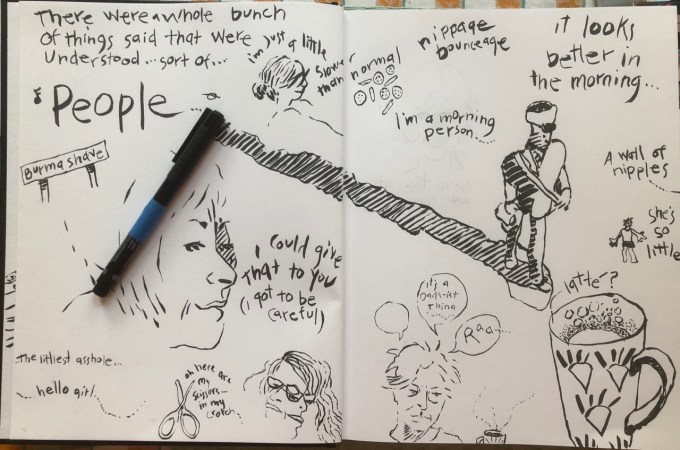 There were a whole bunch
of things said that were
understood...sort of...
i'm just a little
slower
than
normal
People...
Burma Shave
I could give
that to you
(i got to be
careful)
The littlest asshole...
hello girl
oh here are
my
scissors
in my
crotch
nippage
bounceage
it looks
better in
the morning...
I'm a morning
person
A wall of
nipples
she's
so
little
latte?
it's a
thing
Raa